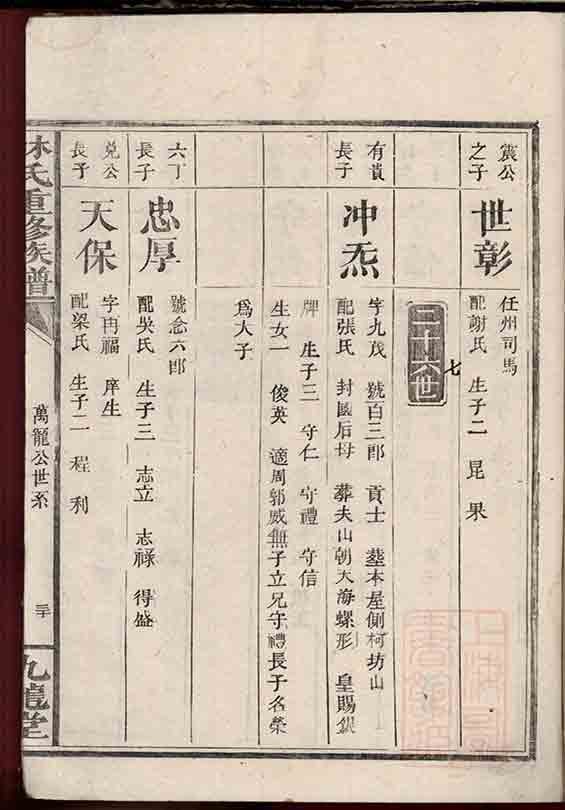 震公
之子
世彰
任州司馬
配謝氏 生子二 昆 果
二十六世
七
有貴
長子
冲炁
字九茂 號百三郎 貢士 塟本屋側柯坊山
配張氏 封國后母 葬夫山朝天海螺形 皇賜銀
牌 生子三 守仁 守禮 守信
生女一 俊英 適周郭威無子立兄守禮長子名榮
爲大子
六丁
長子
忠厚
號念六郎
配吳氏 生子三 志立 志祿 得盛
兌公
長子
天保
字冉福 庠生
配梁氏 生子二 程 利
林氏重修族譜
萬寵公世系
三十
九龍堂